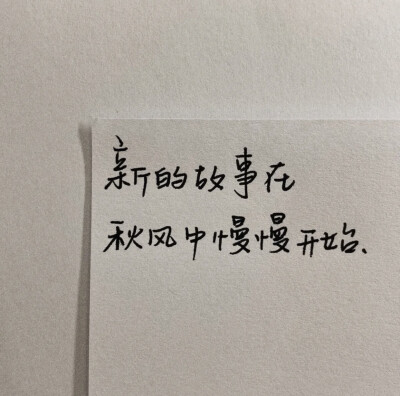 新的故事在
秋风中慢慢开始.